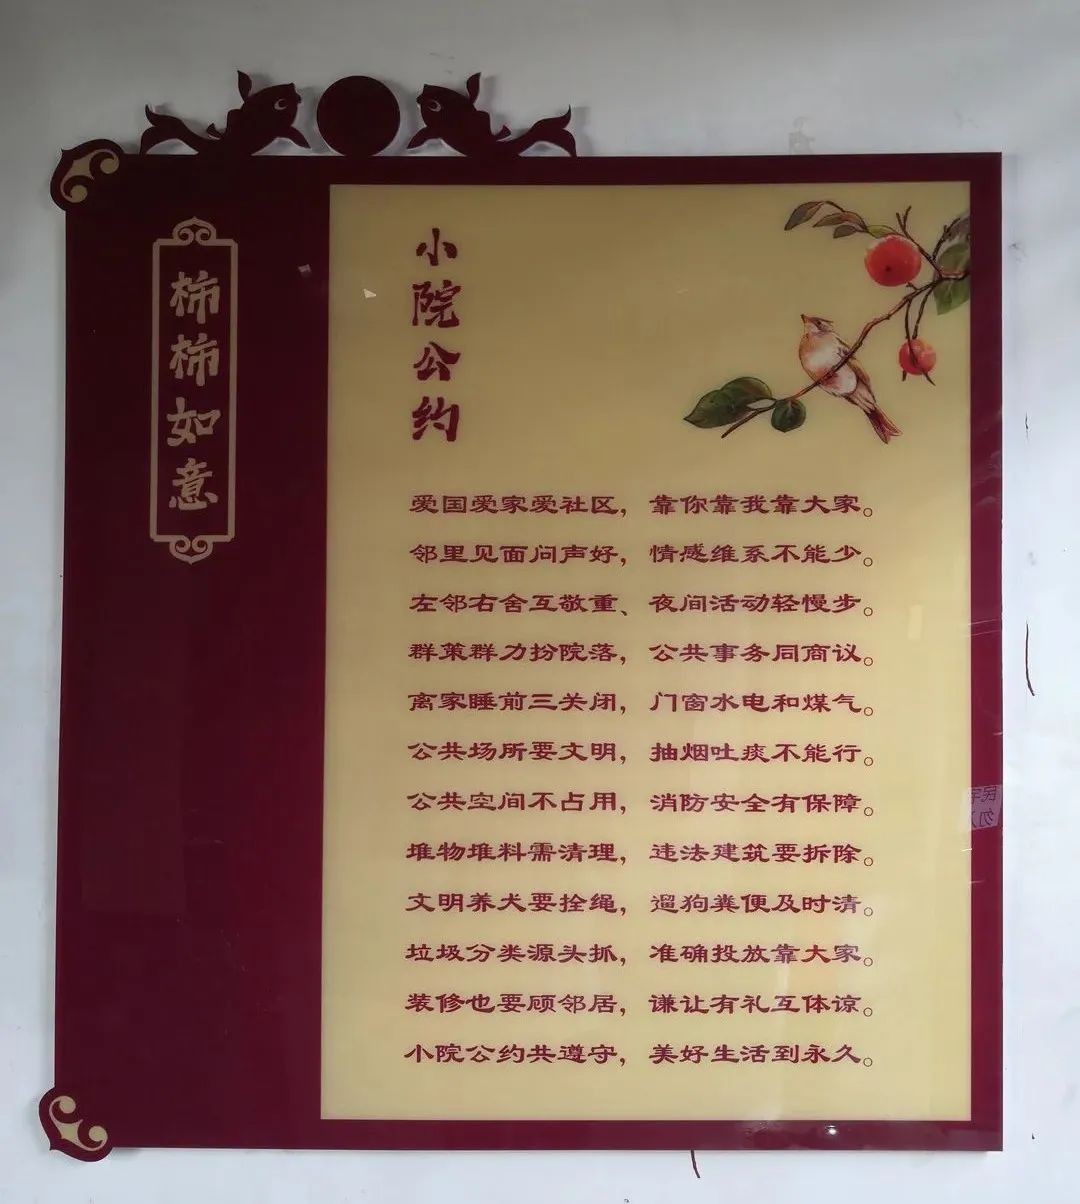 柿柿如意
小院公约
爱国爱家爱社区，靠你靠我靠大家。
邻里见面问声好，情感维系不能少。
左邻右舍互敬重、夜间活动轻慢步。
群策群力扮院落，公共事务同商议。
离家睡前三关闭，门窗水电和煤气。
公共场所要文明，抽烟吐痰不能行。
公共空间不占用，消防安全有保障。
堆物堆料需清理，违法建筑要拆除。
文明养犬要拴绳，遛狗粪便及时清。
垃圾分类源头抓，准确投放靠大家。
装修也要顾邻居，谦让有礼互体谅。
小院公约共遵守，美好生活到永久。